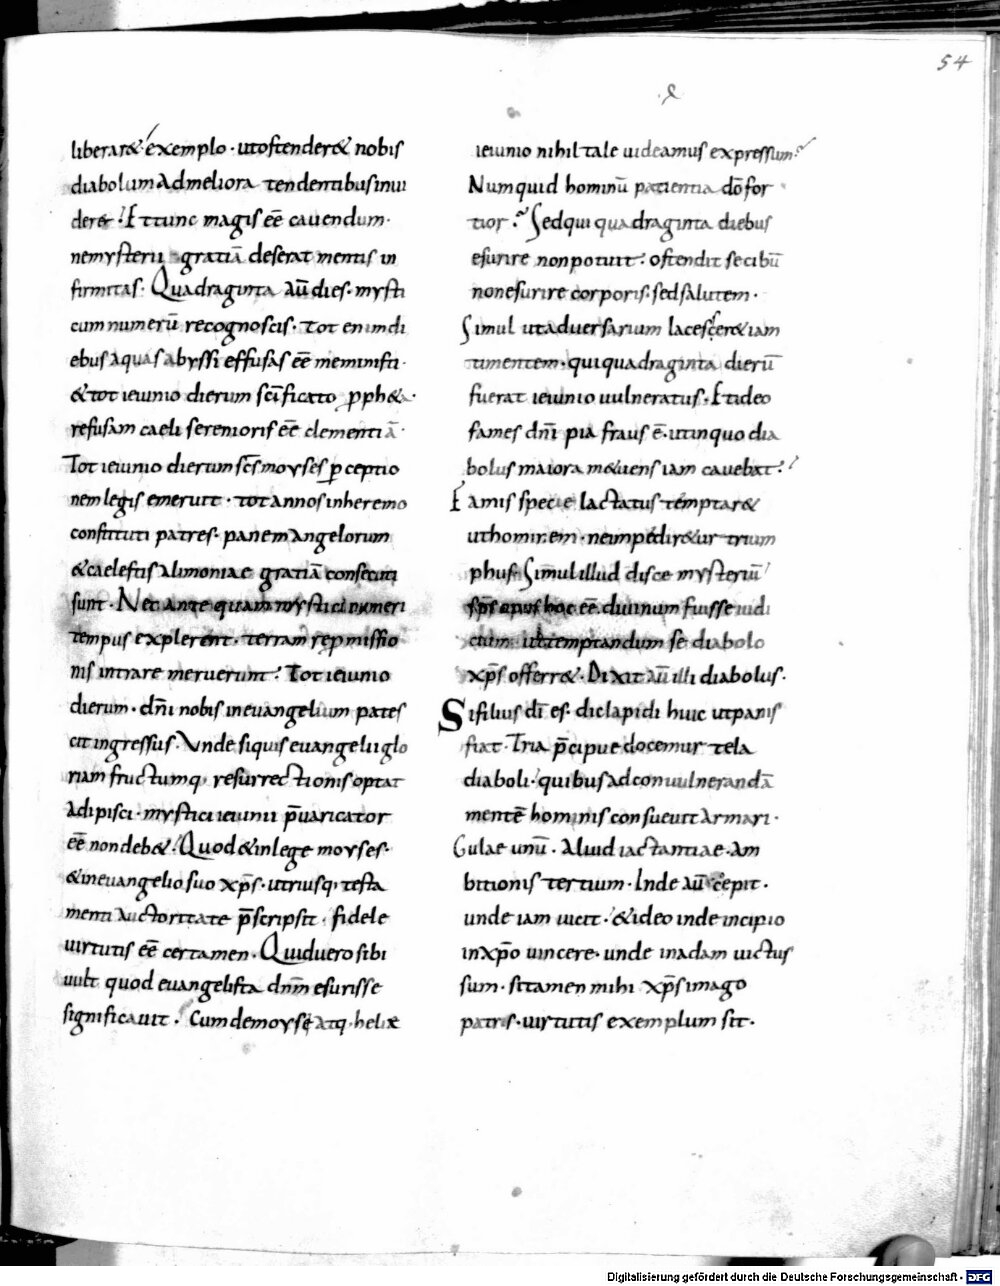 54
liberar& exemplo · utostender& nobis
diabolum ad meliora tendentibus inui
dere · Et tunc magis eē cauendum ·
ne mysterii gratiā deserat mentis in
firmitas · Quadraginta aūt dies · mysti
cum numerū recognoscis · Tot enim di
ebus aquas abyssi effusas eē meministi ·
& tot ieiunio dierum scīficato pph&a ·
refusam caeli serenioris eē clementiā ·
Tot ieiunio dierum scs̄ moyses pceptio
nem legis emeruit · tot annos in heremo
constituti patres · panem angelorum
& caelestis alimoniae gratiā consecuti
sunt · Nec ante quam mystici numeri
tempus explerent · terram repmissio
nis intrare meruerunt · Tot ieiunio
dierum · dn̄i nobis in euangelium pates
cit ingressus · Unde siquis euangelii glo
riam fructumq; resurrectionis optat
adipisci · mystici ieiunii p̄uaricator
eē non deb& · Quod & in lege moyses ·
& in euangelio suo xp̄s · utriusq; testa
menti auctoritate p̄scripsit · fidele
uirtutis eē certamen · Quid uero sibi
uult quod euangelista dnm̄ esurisse
significauit · Cum de moyse atq · heliae
ieiunio nihil tale uideamus expressum
Numquid hominū patientia dō for
tior · Sed qui quadraginta diebus
esurire non potuit · ostendit se cibū
non esurire corporis · sed salutem ·
Simul ut aduersarium lacescer& iam
timentem · qui quadraginta dierū
fuerat ieiunio uulneratus · Et ideo
fames dn̄i pia fraus ē · ut in quo dia
bolus maiora m&uens iam cauebat ·
Famis specie lactatus temptar&
ut hominem · ne impedir&ur trium
phus · Simul illud disce mysteriū
sp̄s opus hoc eē · diuinum fuisse iudi
cium ut temptandum se diabolo
xp̄s offerr& · Dixit aū illi diabolus ·
Si filius dī es · dic lapidi huic ut panis
fiat · Tria p̄cipue docemur tela
diaboli · quibus ad conuulnerandā
mentē hominis consueuit armari ·
Gulae unū · Aliud iactantiae · Am
bitionis tertium · Inde aū cepit ·
unde iam uicit · & ideo inde incipio
in xp̄o uincere · unde in adam uictus
sum · si tamen mihi xp̄s imago
patris · uirtutis exemplum sit ·
Digitalisierung gefördert durch die Deutsche Forschungsgemeinschaft - DFG